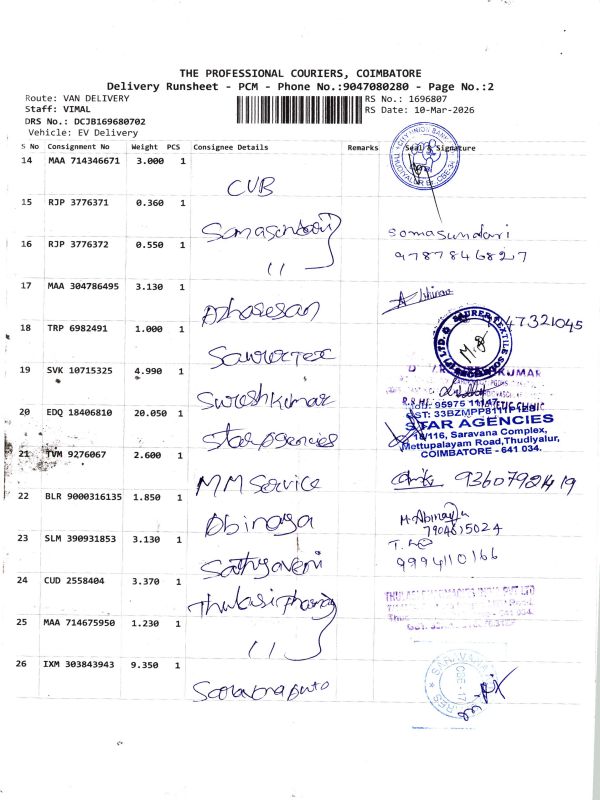 THE PROFESSIONAL COURIERS, COIMBATORE
Delivery Runsheet - PCM - Phone No.:9047080280 - Page No.:2
Route: VAN DELIVERY
RS No.: 1696807
Staff: VIMAL
RS Date: 10-Mar-2026
DRS No.: DCJB169680702
Vehicle: EV Delivery
S No Consignment No Weight PCS Consignee Details Remarks Seal & Signature
14 MAA 714346671 3.000 1
CUB
15 RJP 3776371 0.360 1
Somasundari
somasundari
16 RJP 3776372 0.550 1
9787846827
17 MAA 304786495 3.130 1
18 TRP 6982491 1.000 1
19 SVK 10715325 4.990 1
Sureshkumar
20 EDQ 18406810 20.050 1
Star Agencies
STAR AGENCIES
18/116, Saravana Complex,
Mettupalayam Road,Thudiyalur,
COIMBATORE - 641 034.
21 TVM 9276067 2.600 1
MM Service
22 BLR 9000316135 1.850 1
Abinaya
7904615024
23 SLM 390931853 3.130 1
Sathyaveni
9994110166
24 CUD 2558404 3.370 1
Thulasi Pharmay
25 MAA 714675950 1.230 1
26 IXM 303843943 9.350 1